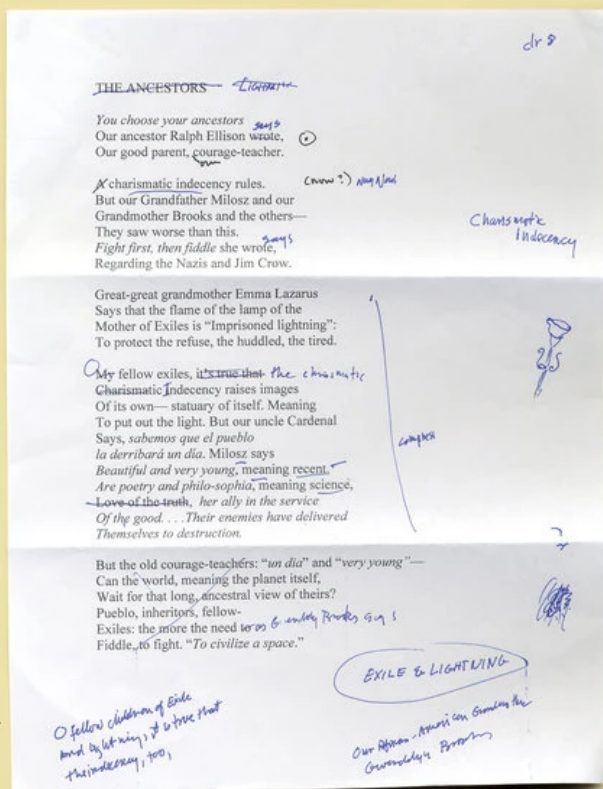 dr 8
THE ANCESTORS LIGHTNING
You choose your ancestors
says
Our ancestor Ralph Ellison wrote,
Our good parent, courage-teacher.
our
A charismatic indecency rules. (now?)
But our Grandfather Milosz and our
Grandmother Brooks and the others—
They saw worse than this.
Charismatic
Indecency
says
Fight first, then fiddle she wrote,
Regarding the Nazis and Jim Crow.
Great-great grandmother Emma Lazarus
Says that the flame of the lamp of the
Mother of Exiles is “Imprisoned lightning”:
To protect the refuse, the huddled, the tired.
O My fellow exiles, it's true that the charismatic
Charismatic Indecency raises images
Of its own— statuary of itself. Meaning
To put out the light. But our uncle Cardenal
Says, sabemos que el pueblo
la derribará un día. Milosz says
compress
Beautiful and very young, meaning recent,
Are poetry and philo-sophia, meaning science,
Love of the truth, her ally in the service
Of the good. . . .Their enemies have delivered
Themselves to destruction.
?
But the old courage-teachers: “un día” and “very young”—
Can the world, meaning the planet itself,
Wait for that long, ancestral view of theirs?
Pueblo, inheritors, fellow-
Exiles: the more the need to as Gwendolyn Brooks says
Fiddle, to fight. “To civilize a space.”
EXILE & LIGHTNING
O fellow children of Exile
And lightning, it is true that
the indecency, too,
Our African-American Grandmother
Gwendolyn Brooks